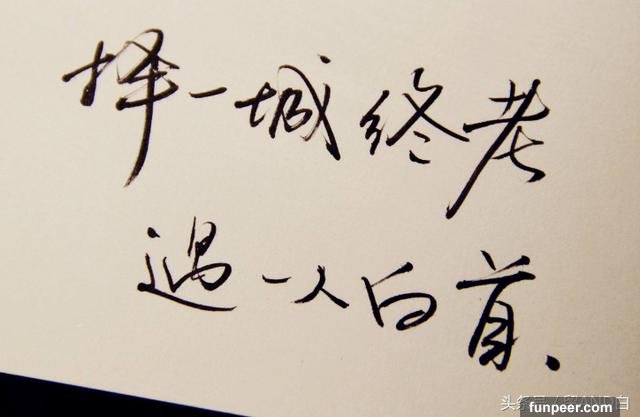 择一城终老
遇一人白首、
funpeer.com